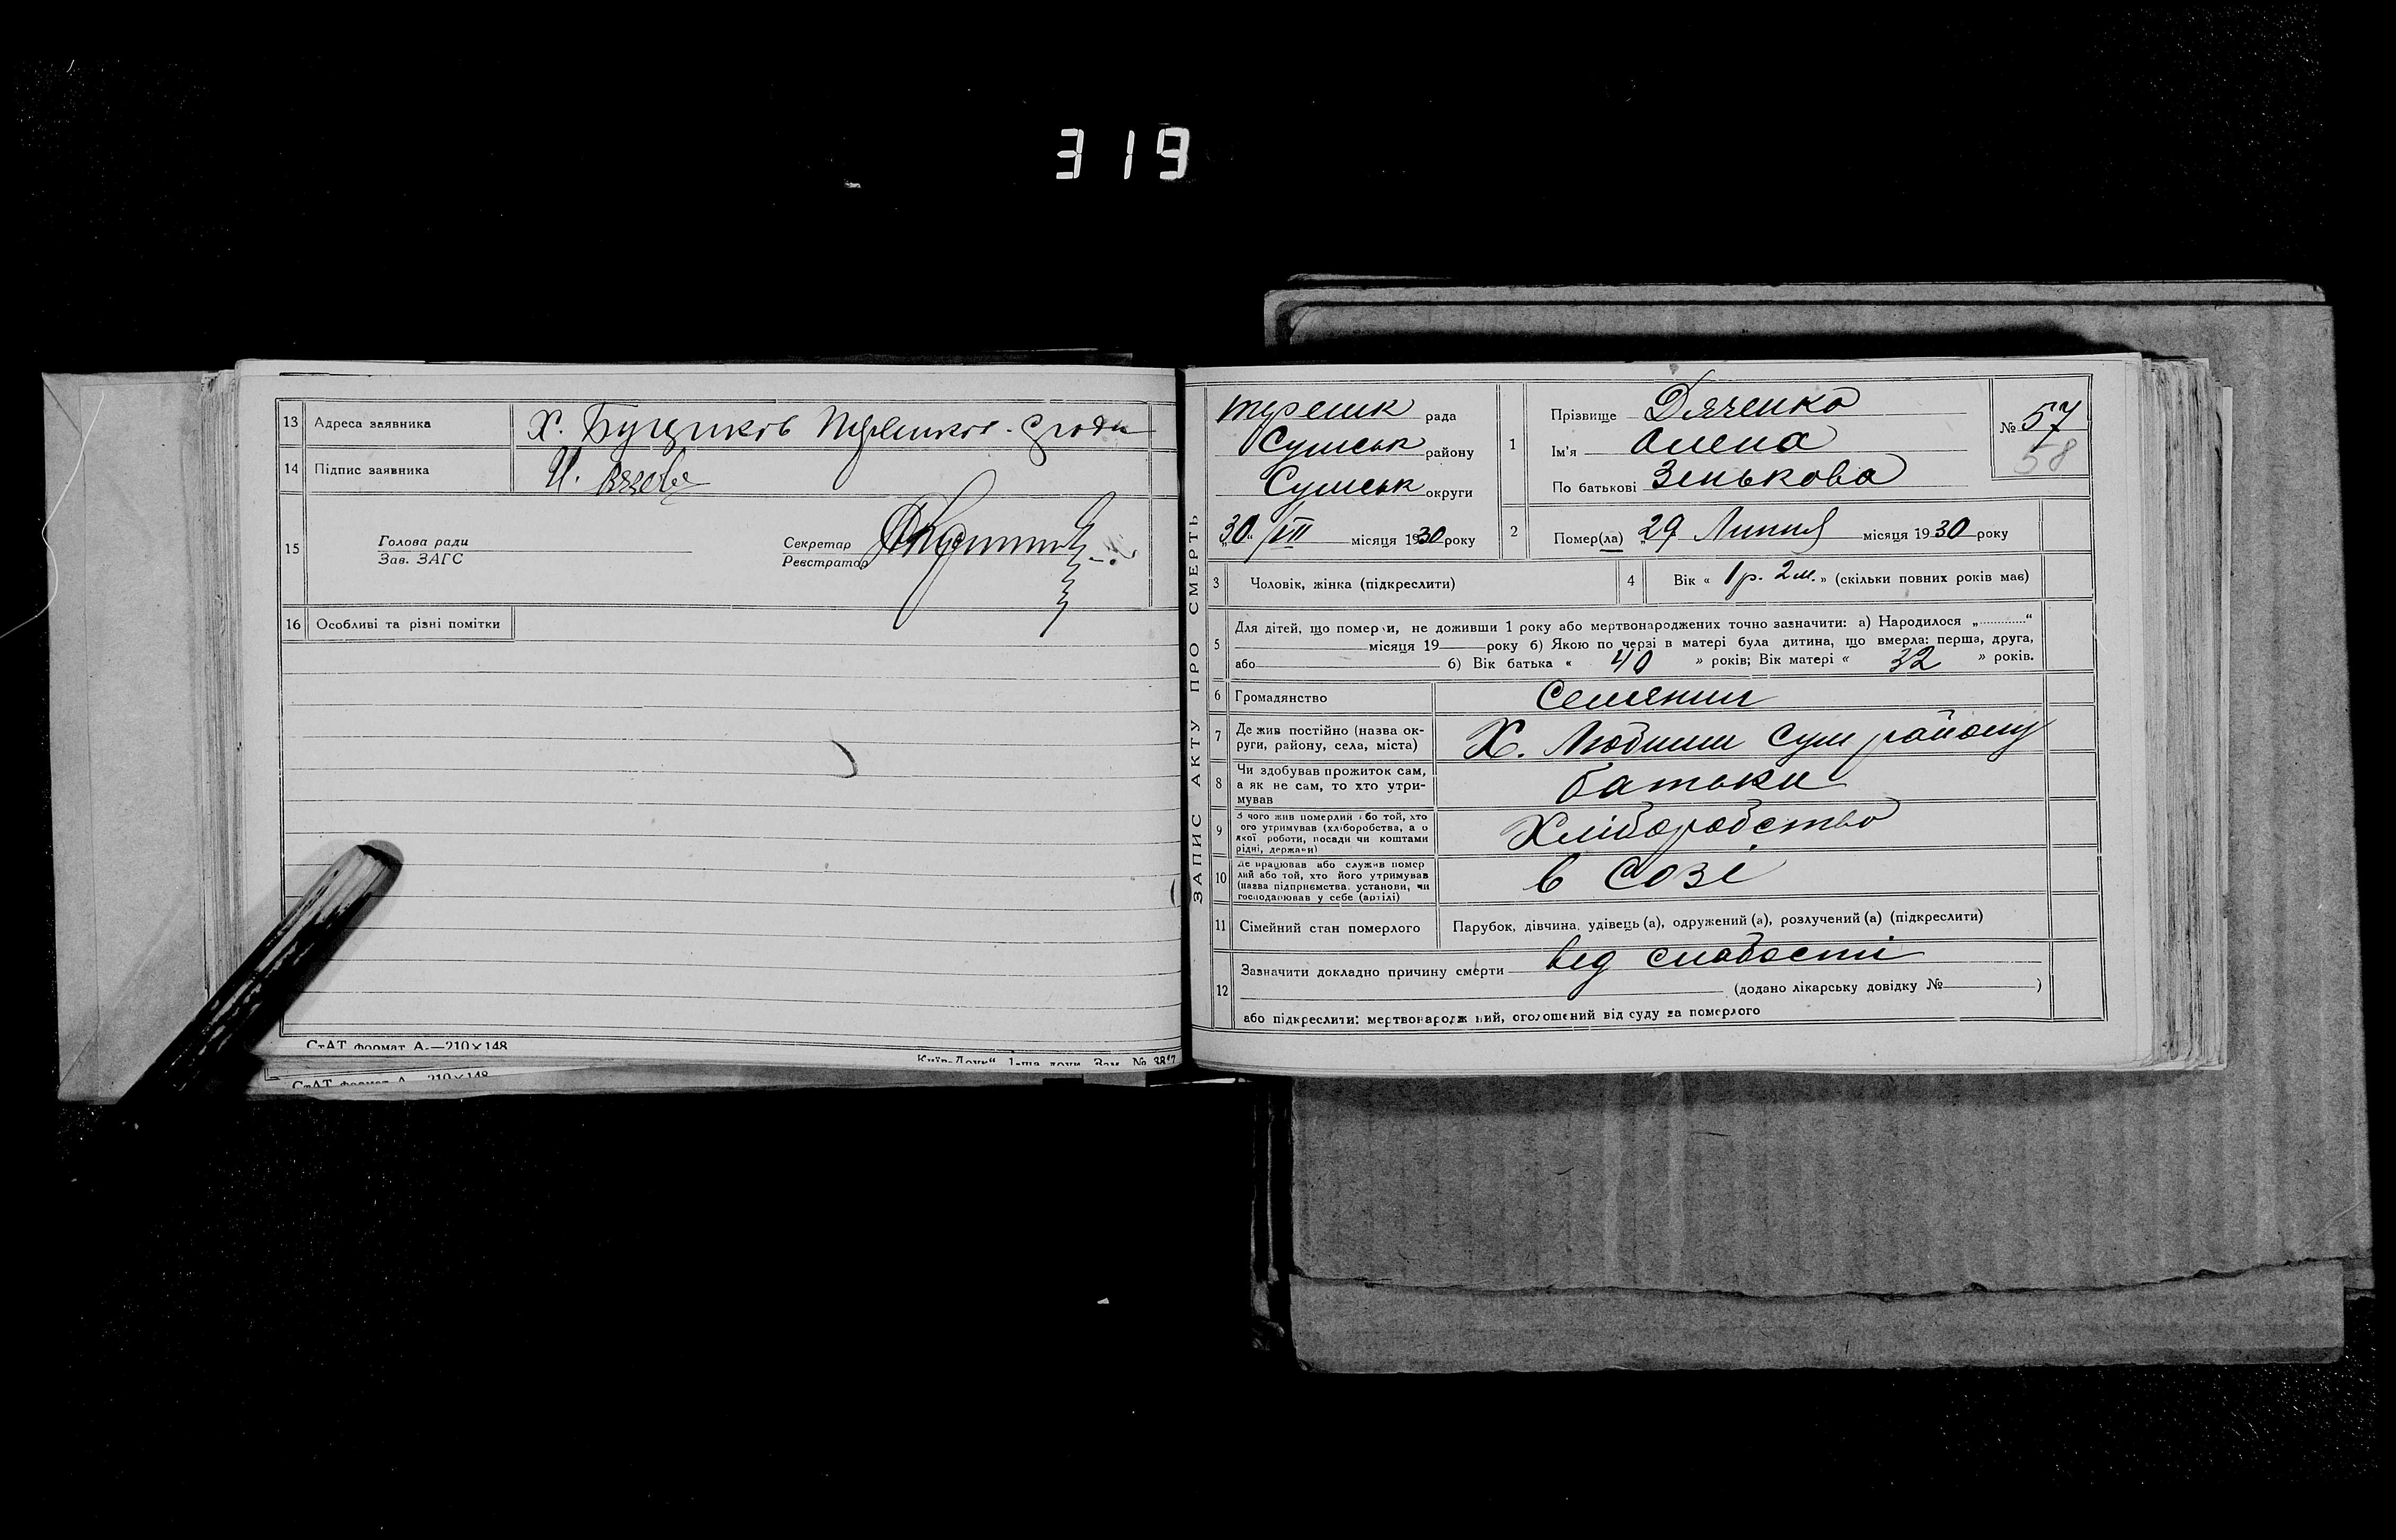 319
13 Адреса заявника Х.
14 Підпис заявника И.
15 Голова ради
Зав. ЗАГС
Секретар
Реєстратор
16 Особливі та різні помітки
СтАТ формат А.—210×148
„Київ-Друк“ 1-ша друк. Зам. №
СтАТ формат А 210×148
ЗАПИС АКТУ ПРО СМЕРТЬ
рада
Сумськ району
Сумськ округи
„30“ /VII місяця 1930 року
1 Прізвище Дяченко
Ім'я Олена
По батькові Зенькова
№ 57
58
2 Помер(ла) „29 Липня місяця 1930 року
3 Чоловік, жінка (підкреслити)
4 Вік « 1 р. 2 м. » (скільки повних років має)
5 Для дітей, що померли, не доживши 1 року або мертвонароджених точно зазначити: а) Народилося „............“
місяця 19 року б) Якою по черзі в матері була дитина, що вмерла: перша, друга,
або б) Вік батька « 40 » років; Вік матері « 32 » років.
6 Громадянство Селянин
7 Де жив постійно (назва ок-
руги, району, села, міста) Х. Сум району
8 Чи здобував прожиток сам,
а як не сам, то хто утри-
мував батьки
9 З чого жив померлий або той, хто
його утримував (хліборобства, а о
якої роботи, посади чи коштами
рідні, держави) Хліборобство
10 Де працював або служив помер
лий або той, хто його утримував
(назва підприємства, установи, чи
господарював у себе (артілі) в Созі
11 Сімейний стан померлого Парубок, дівчина, удівець (а), одружений (а), розлучений (а) (підкреслити)
12 Зазначити докладно причину смерти від слабости
(додано лікарську довідку № )
або підкреслити: мертвонародж ний, оголошений від суду за померлого